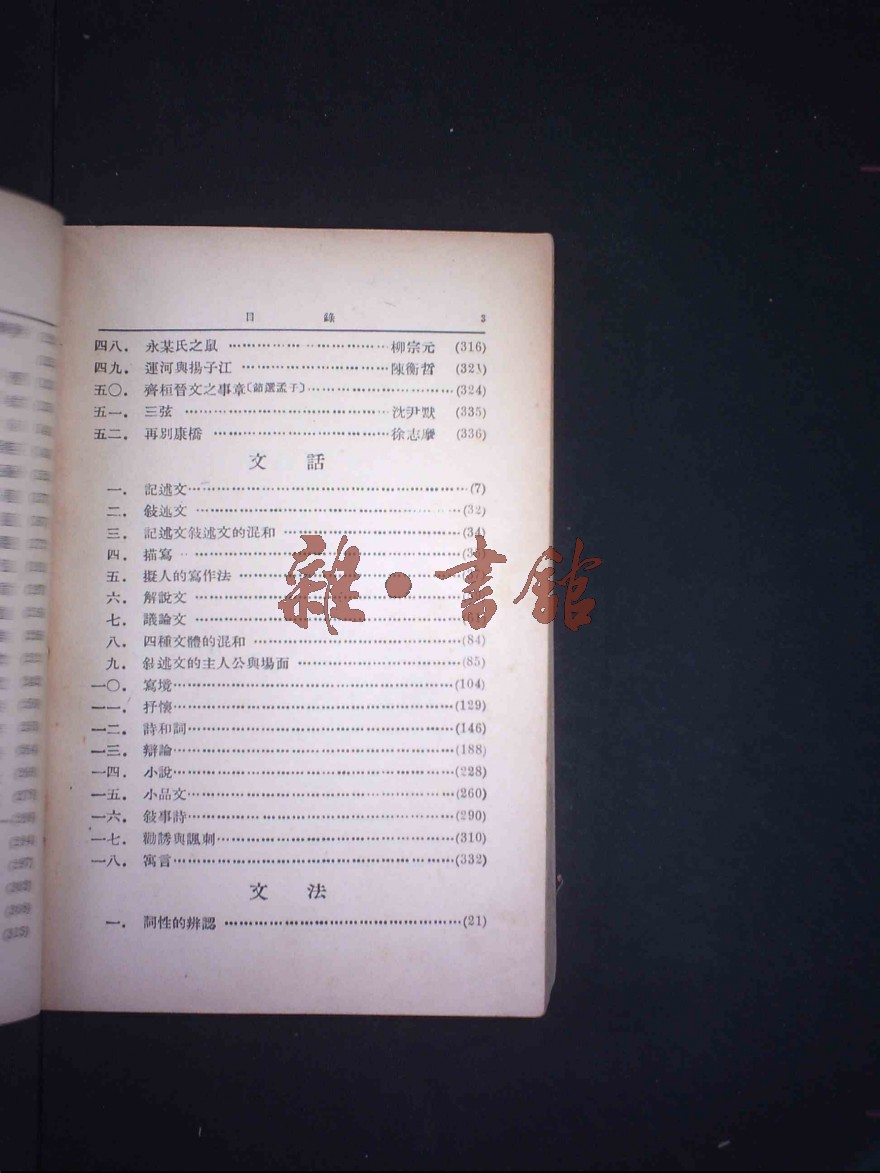 目錄 3
四八. 永某氏之鼠 柳宗元 (316)
四九. 運河與揚子江 陳衡哲 (323)
五〇. 齊桓晉文之事章〔節選孟子〕 (324)
五一. 三弦 沈尹默 (335)
五二. 再別康橋 徐志摩 (336)
文話
一. 記述文 (7)
二. 敍述文 (32)
三. 記述文敍述文的混和 (34)
四. 描寫
五. 擬人的寫作法
六. 解說文
七. 議論文
八. 四種文體的混和 (84)
九. 敍述文的主人公與場面 (85)
一〇. 寫境 (104)
一一. 抒懷 (129)
一二. 詩和詞 (146)
一三. 辯論 (188)
一四. 小說 (228)
一五. 小品文 (260)
一六. 敍事詩 (290)
一七. 勸誘與諷刺 (310)
一八. 寓言 (332)
文法
一. 詞性的辨認 (21)
雜·書館